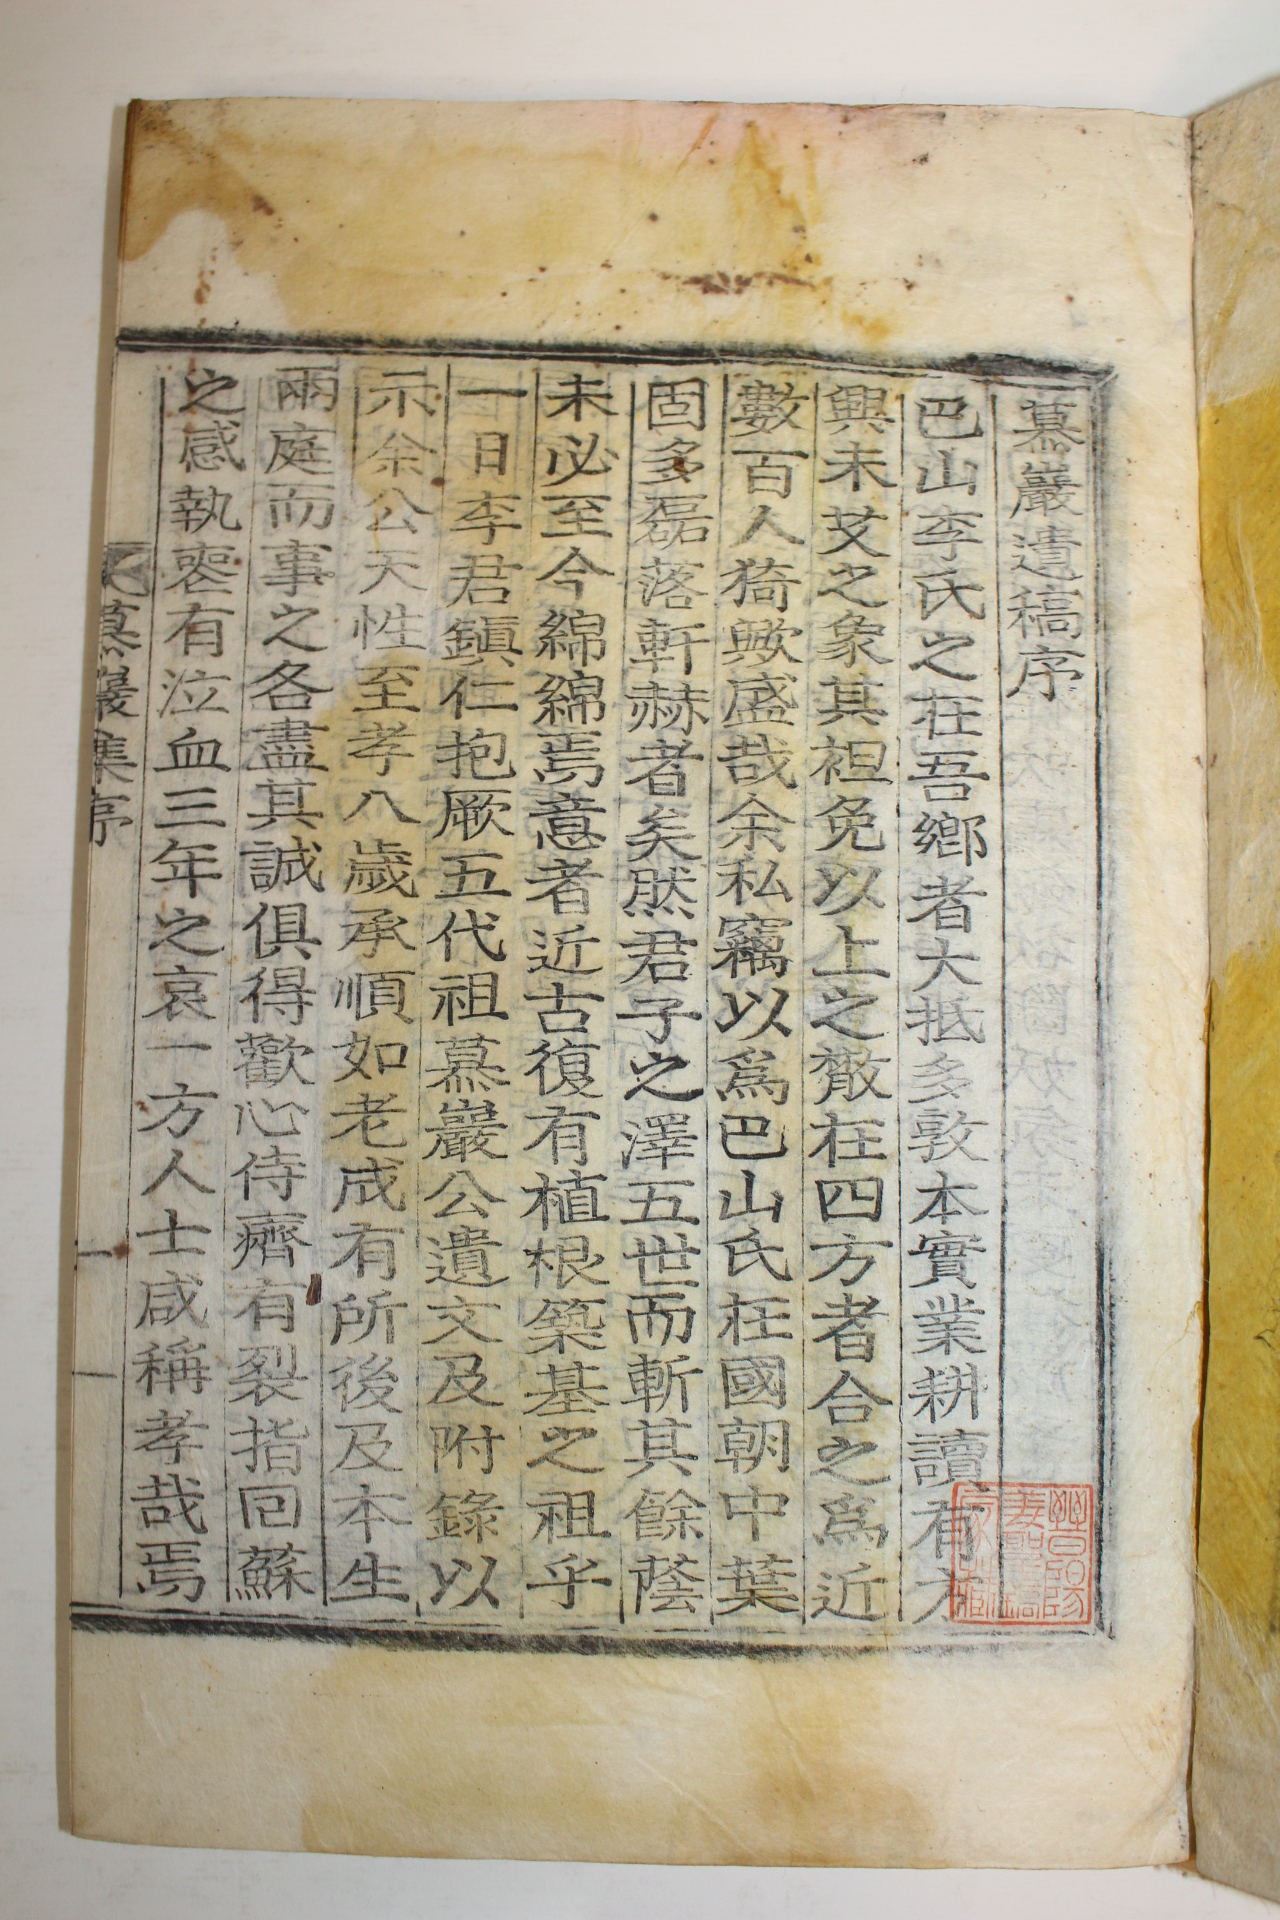 慕巖遺稿序
巴山李氏之在吾鄉者大抵多敦本實業耕讀有方
興未艾之象其袒免以上之散在四方者合之爲近
數百人猗歟盛哉余私竊以爲巴山氏在國朝中葉
固多磊落軒赫者矣然君子之澤五世而斬其餘蔭
未必至今綿綿焉意者近古復有植根築基之祖乎
一日李君鎭仁抱厥五代祖慕巖公遺文及附錄以
示余公天性至孝八歲承順如老成有所後及本生
兩庭而事之各盡其誠俱得歡心侍癠有裂指回蘇
之感執喪有泣血三年之哀一方人士咸稱孝哉焉
慕巖集序
一